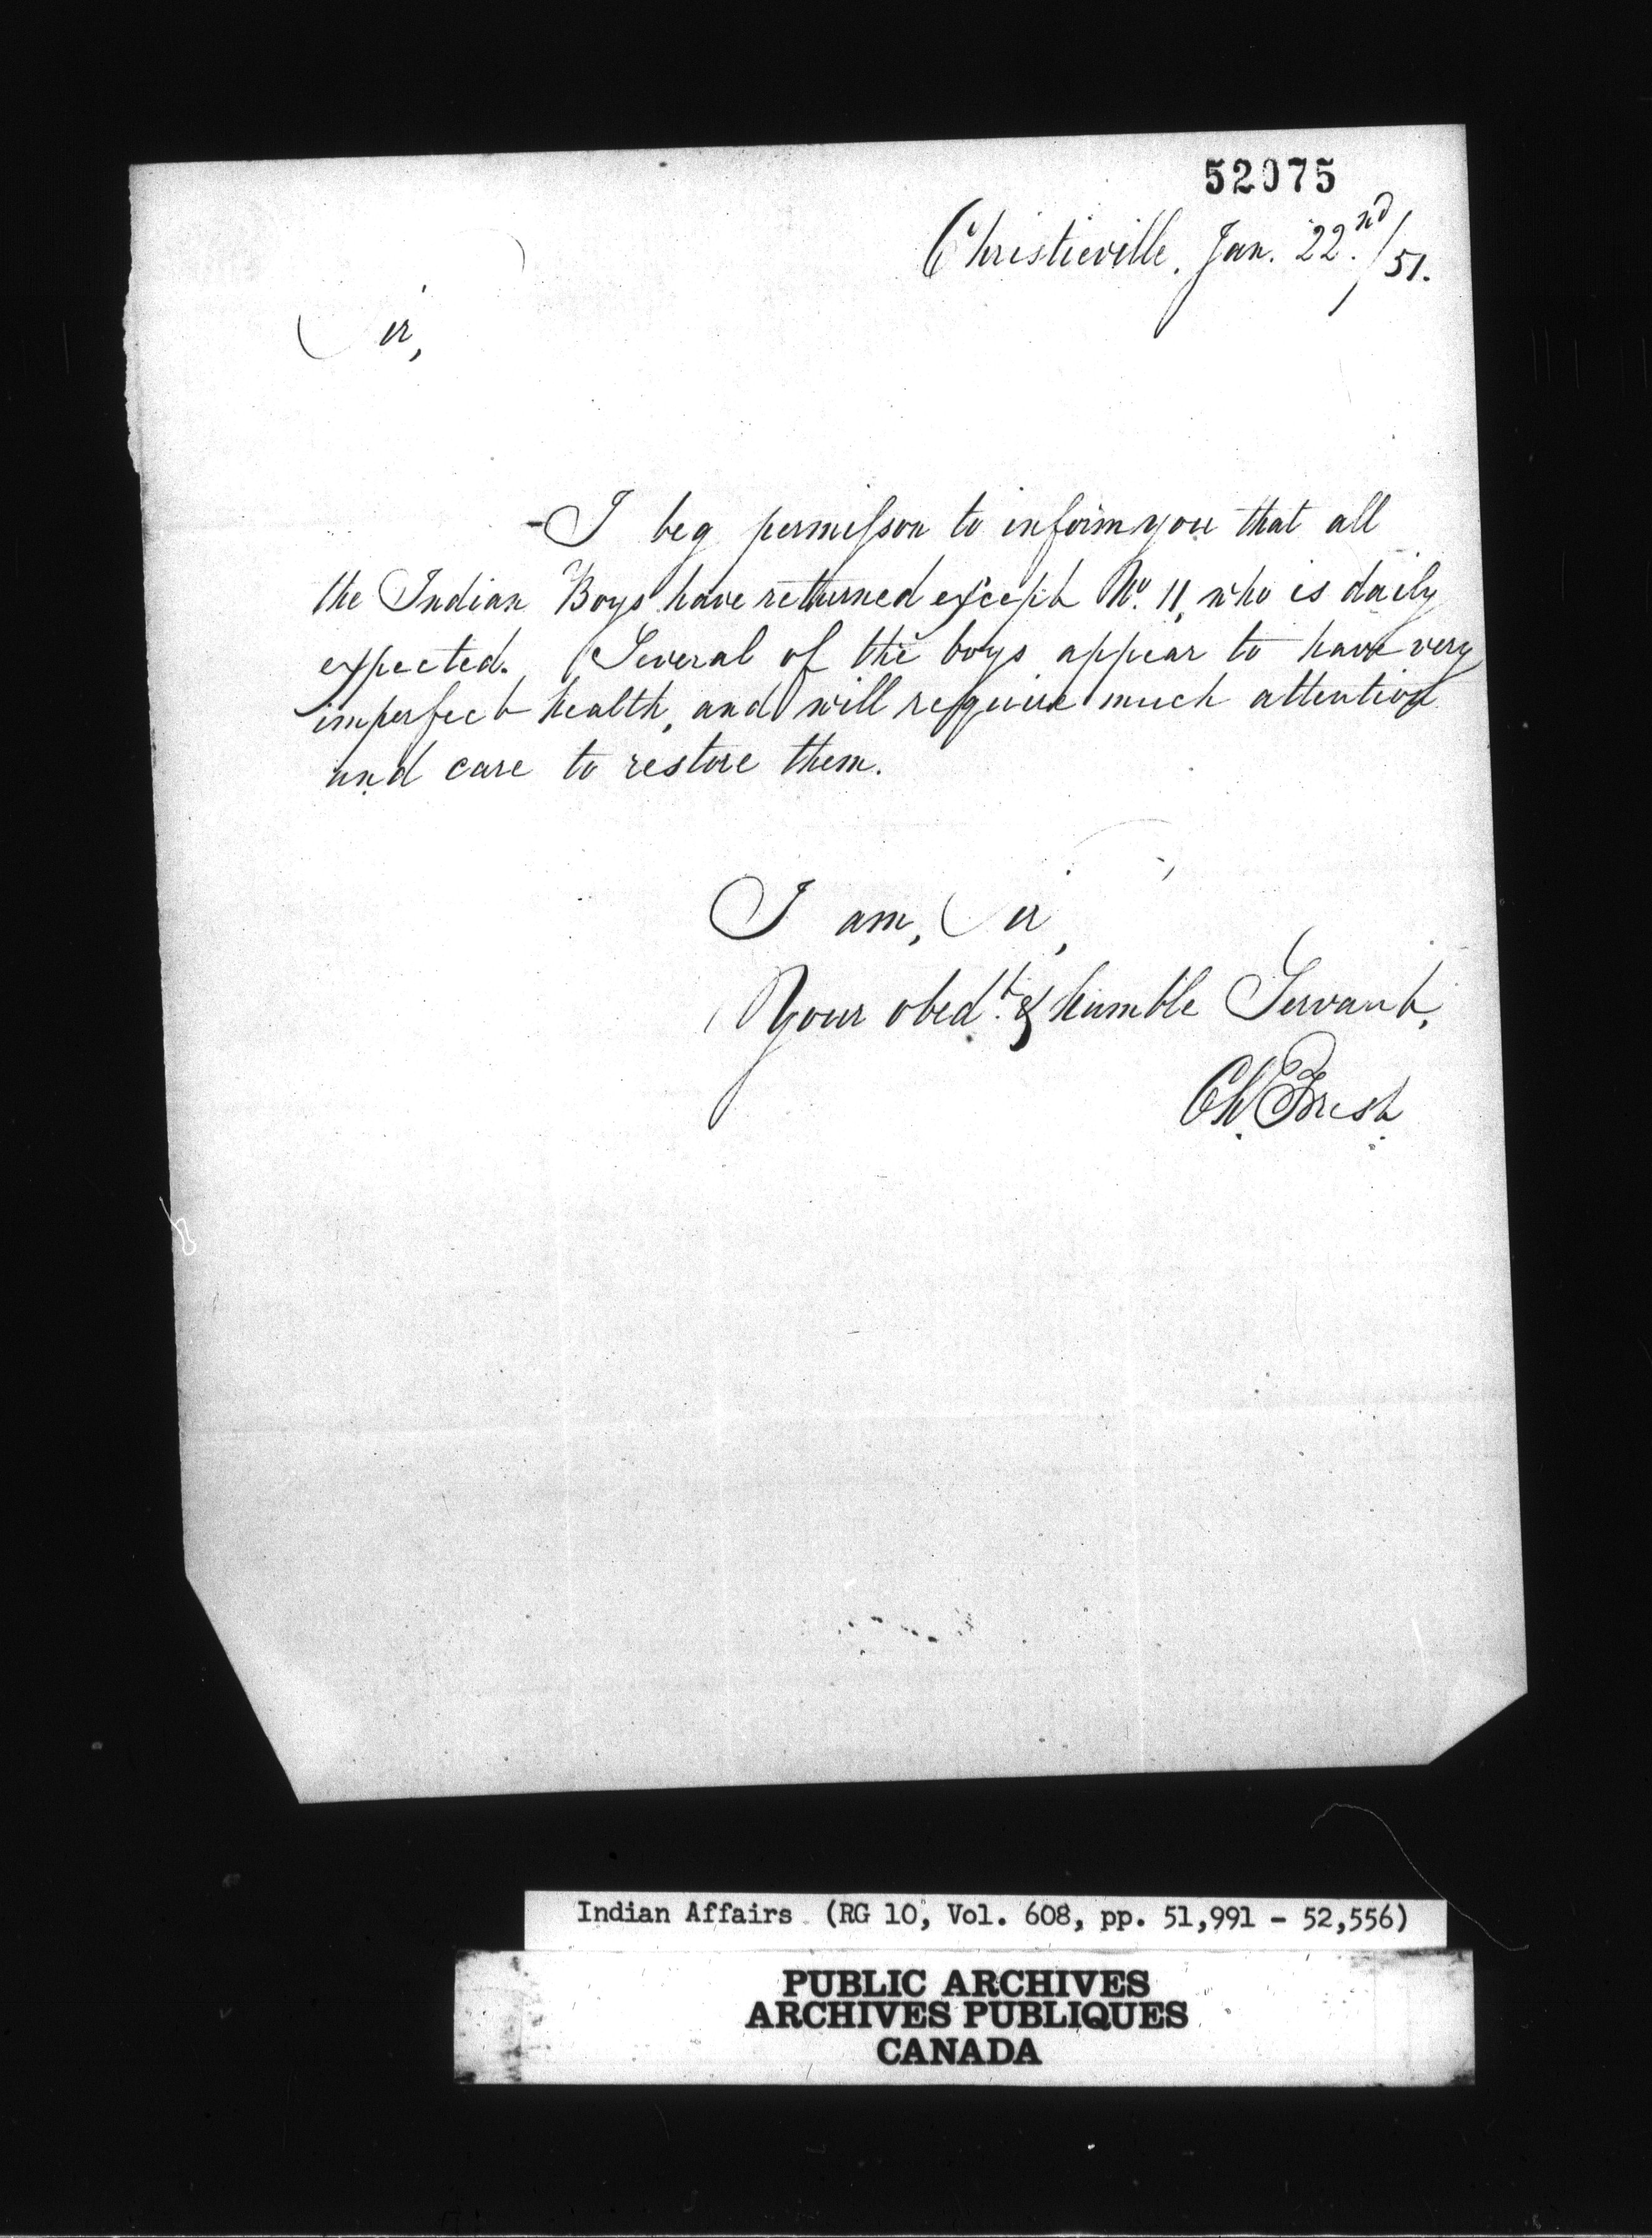 52075
Christieville, Jan. 22nd./51.
Sir,
I beg permisson to inform you that all
the Indian Boys have returned except No. 11, who is daily
expected. Several of the boys appear to have very
imperfect health, and will require much attention
and care to restore them.
I am, Sir,
Your obedt. & humble Servant,
Ch. Forest
Indian Affairs (RG 10, Vol. 608, pp. 51,991 - 52,556)
PUBLIC ARCHIVES
ARCHIVES PUBLIQUES
CANADA